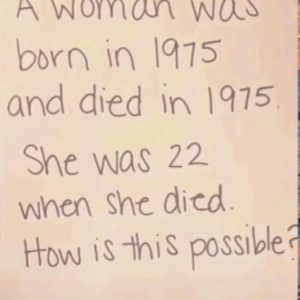 A woman was
born in 1975
and died in 1975.
She was 22
when she died.
How is this possible?